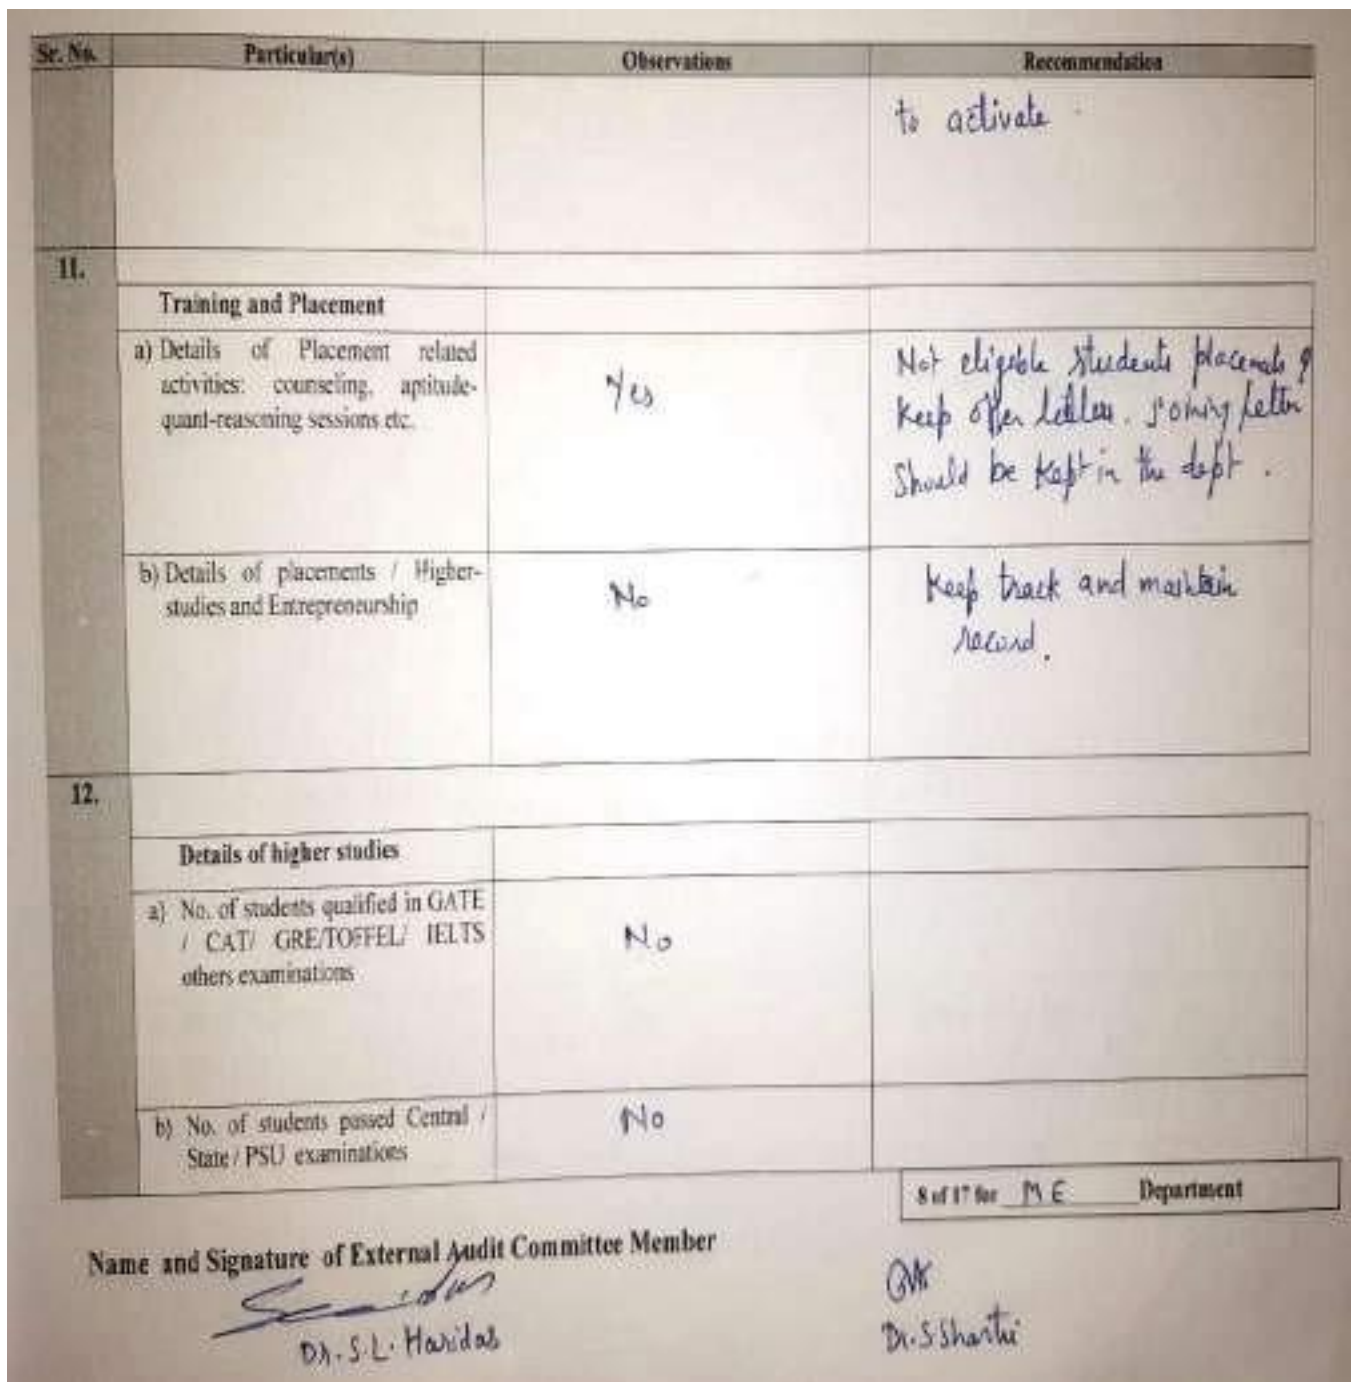 Sr. No. Particular(s) Observations Recommendation
to activate
11.
Training and Placement
a) Details of Placement related
activities: counseling, aptitude-
quant-reasoning sessions etc.
Yes
Not eligible students placements &
Keep offer letters. Joining letter
should be kept in the dept.
b) Details of placements / Higher-
studies and Entrepreneurship
No
Keep track and maintain
record.
12.
Details of higher studies
a) No. of students qualified in GATE
/ CAT/ GRE/TOFFEL/ IELTS
others examinations
No
b) No. of students passed Central /
State / PSU examinations
No
8 of 17 for ME Department
Name and Signature of External Audit Committee Member
Dr. S.L. Haridas
Dr. S